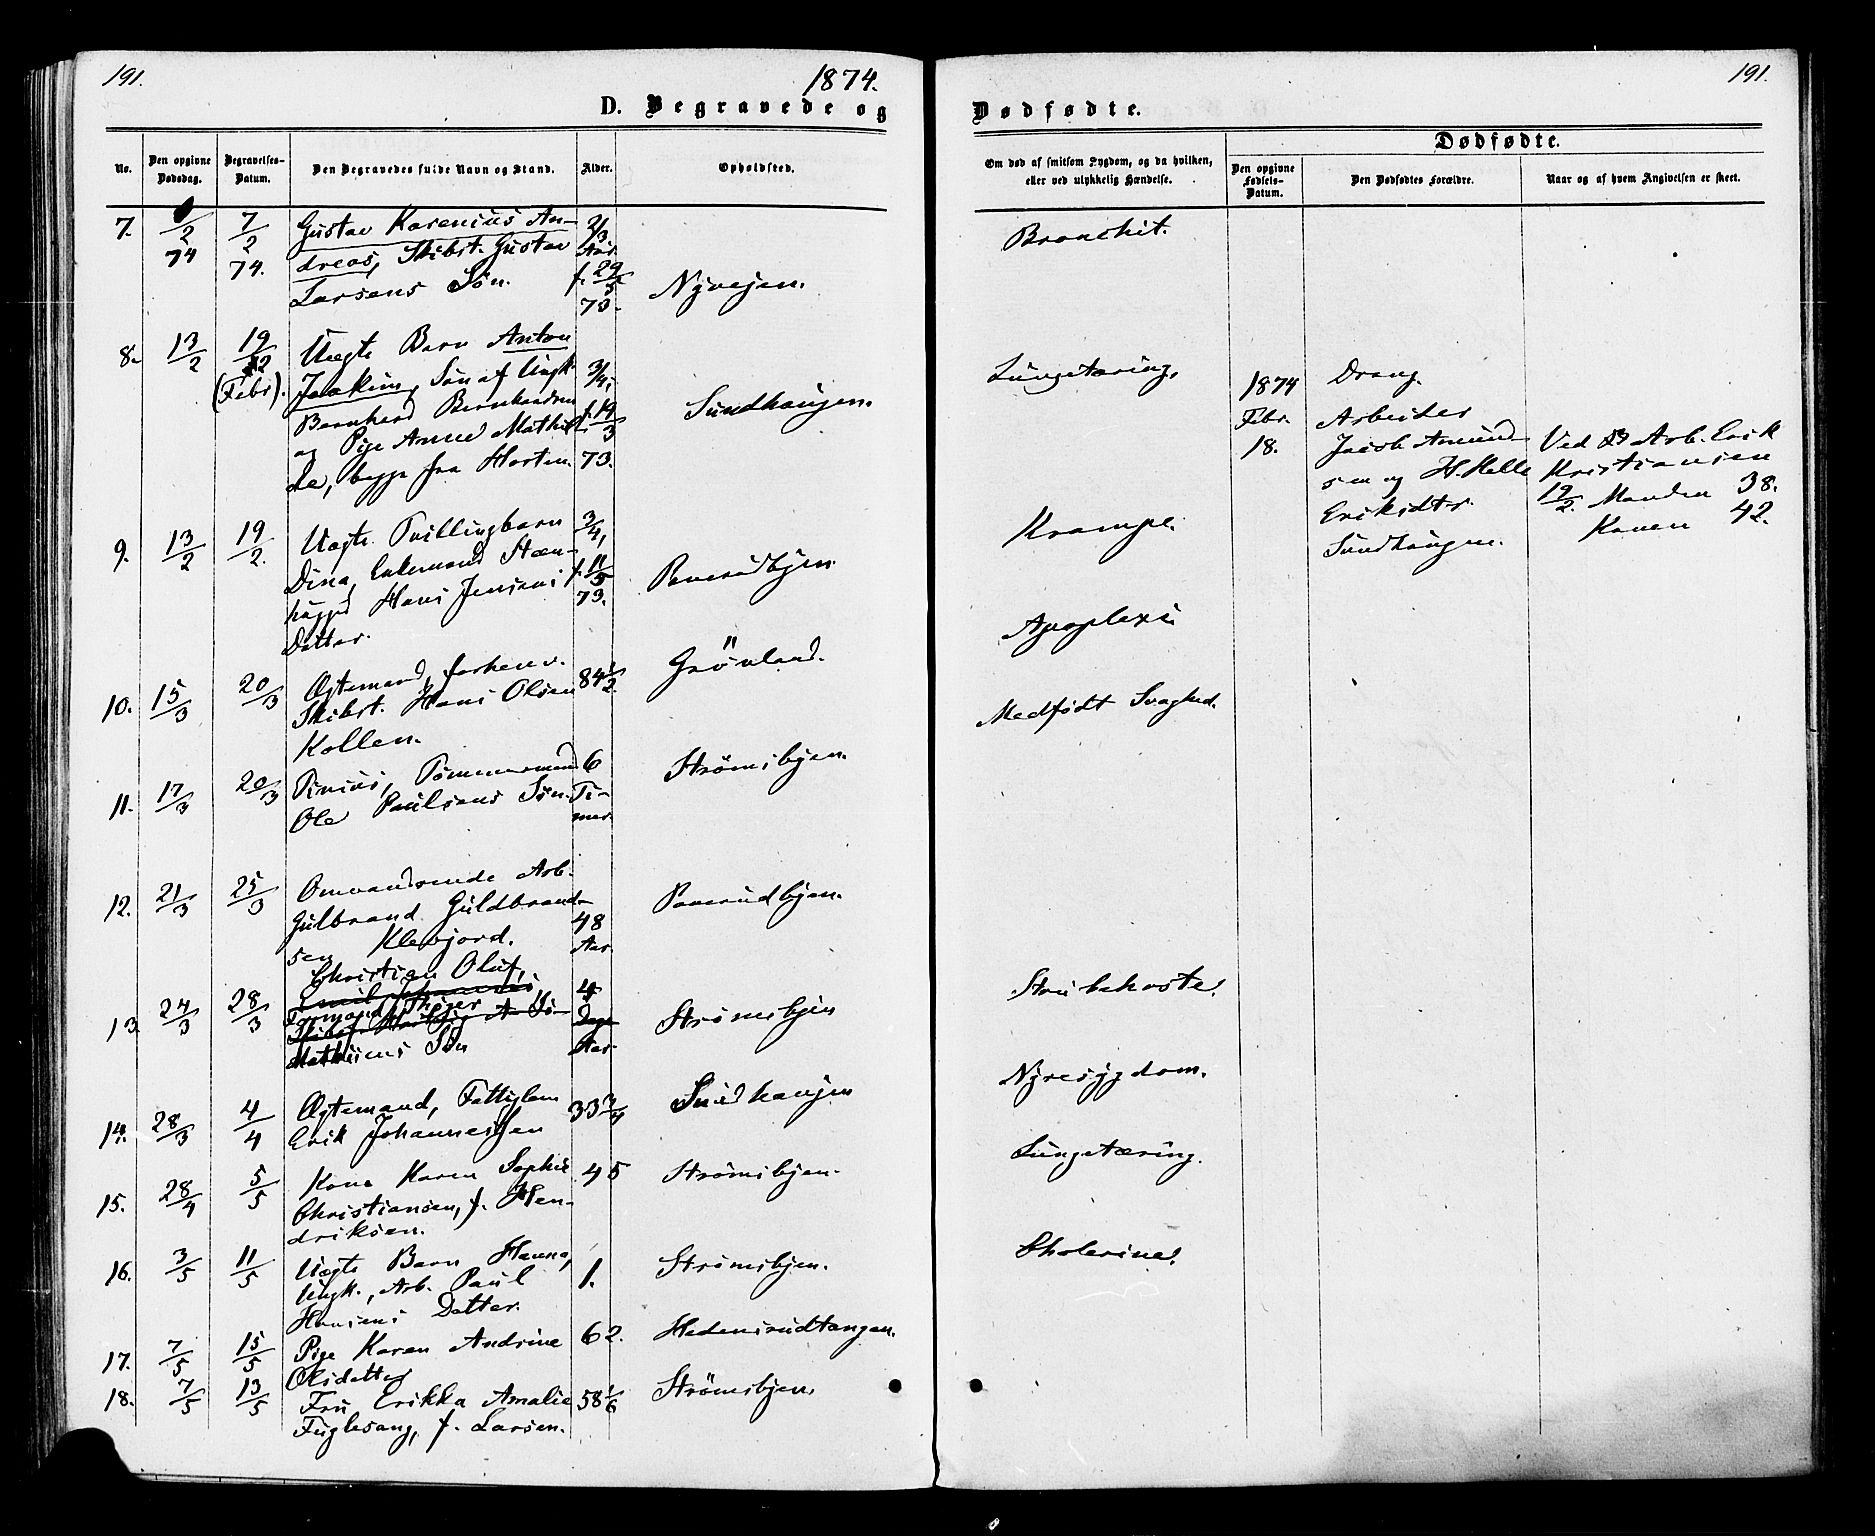 191.
1874.
D. Begravede og
No.
Den opgivne Dødsdag.
Begravelses-Datum.
Den Begravedes fulde Navn og Stand.
Alder.
Opholdsted.
7.
2
74
7/2
74.
Gustav Karenius An-
dreas, Skibst. Gustav
Larsens Søn.
2/3
Aar
f. 29/5
73.
Nyvejen.
8.
13/2
19/2
(Febr.)
Uægte Barn Anton
Joakim, Søn af Ungk.
Bernhard Bernhardsen
og Pige Anne Mathil-
de, begge fra Horten.
3/4,
f. 19/3
73.
Sundhaugen.
9.
13/2
19/2.
Uægte Tvillingbarn
Dina, Enkemand Sten-
hugger Hans Jensens
Datter.
3/4,
f. 11/5
73.
Paverudbyen
10.
15/3
20/3
Ægtemand, forhenv.
Skibst. Hans Olsen
Kollen.
84 1/2.
Grönland.
11.
17/3
20/3
Tinius, Tømmermand
Ole Paulsens Søn.
6
Ti-
mer
Strømsbyen.
12.
21/3
25/3
Omvandrende Arb.
Gulbrand Guldbrand-
sen Klevjord.
48
Aar.
Paverudbyen.
13
24/3
28/3
Christian Oluf,
Emil Johannes
Formand Thøger
Mathisens Søn
4
Dage
Aar.
Strömsbyen
14.
28/3
4/4
Ægtemand, Fattiglem
Erik Johannessen
33 3/4
Sundhaugen
15.
28/4
5/5
Kone Karen Sophie
Christiansen, f. Hen-
driksen.
45
Strömsbyen.
16.
3/5
11/5
Uægte Barn Hanna,
Ungk., Arb. Paul
Hansens Datter.
1.
Strömsbyen.
17.
7/5
15/5
Pige Karen Andrine
Olsdatter
62.
Hedensrudtangen.
18.
7/5
13/5
Fru Erikka Amalie
Fuglesang, f. Larsen.
58 1/6
Strömsbyen.
191.
Dødfødte.
Om død af smitsom Sygdom, og da hvilken,
eller ved ulykkelig Hændelse.
Dødfødte.
Den opgivne Fødsels-Datum.
Den Dødfødtes Forældre.
Naar og af hvem Angivelsen er skeet.
Bronchit.
Lungetæring.
Krampe.
Apoplexi
Medfødt Svaghed.
Strubehoste.
Nyresygdom.
Lungetæring.
Cholerine.
1874
Febr.
18.
Dreng.
Arbeider
Jacob Amund-
sen og H. Helle
Eriksdtr.
Sundhaugen.
Ved Arb. Erik
Kristiansen
19/2. Manden 38.
Konen 42.